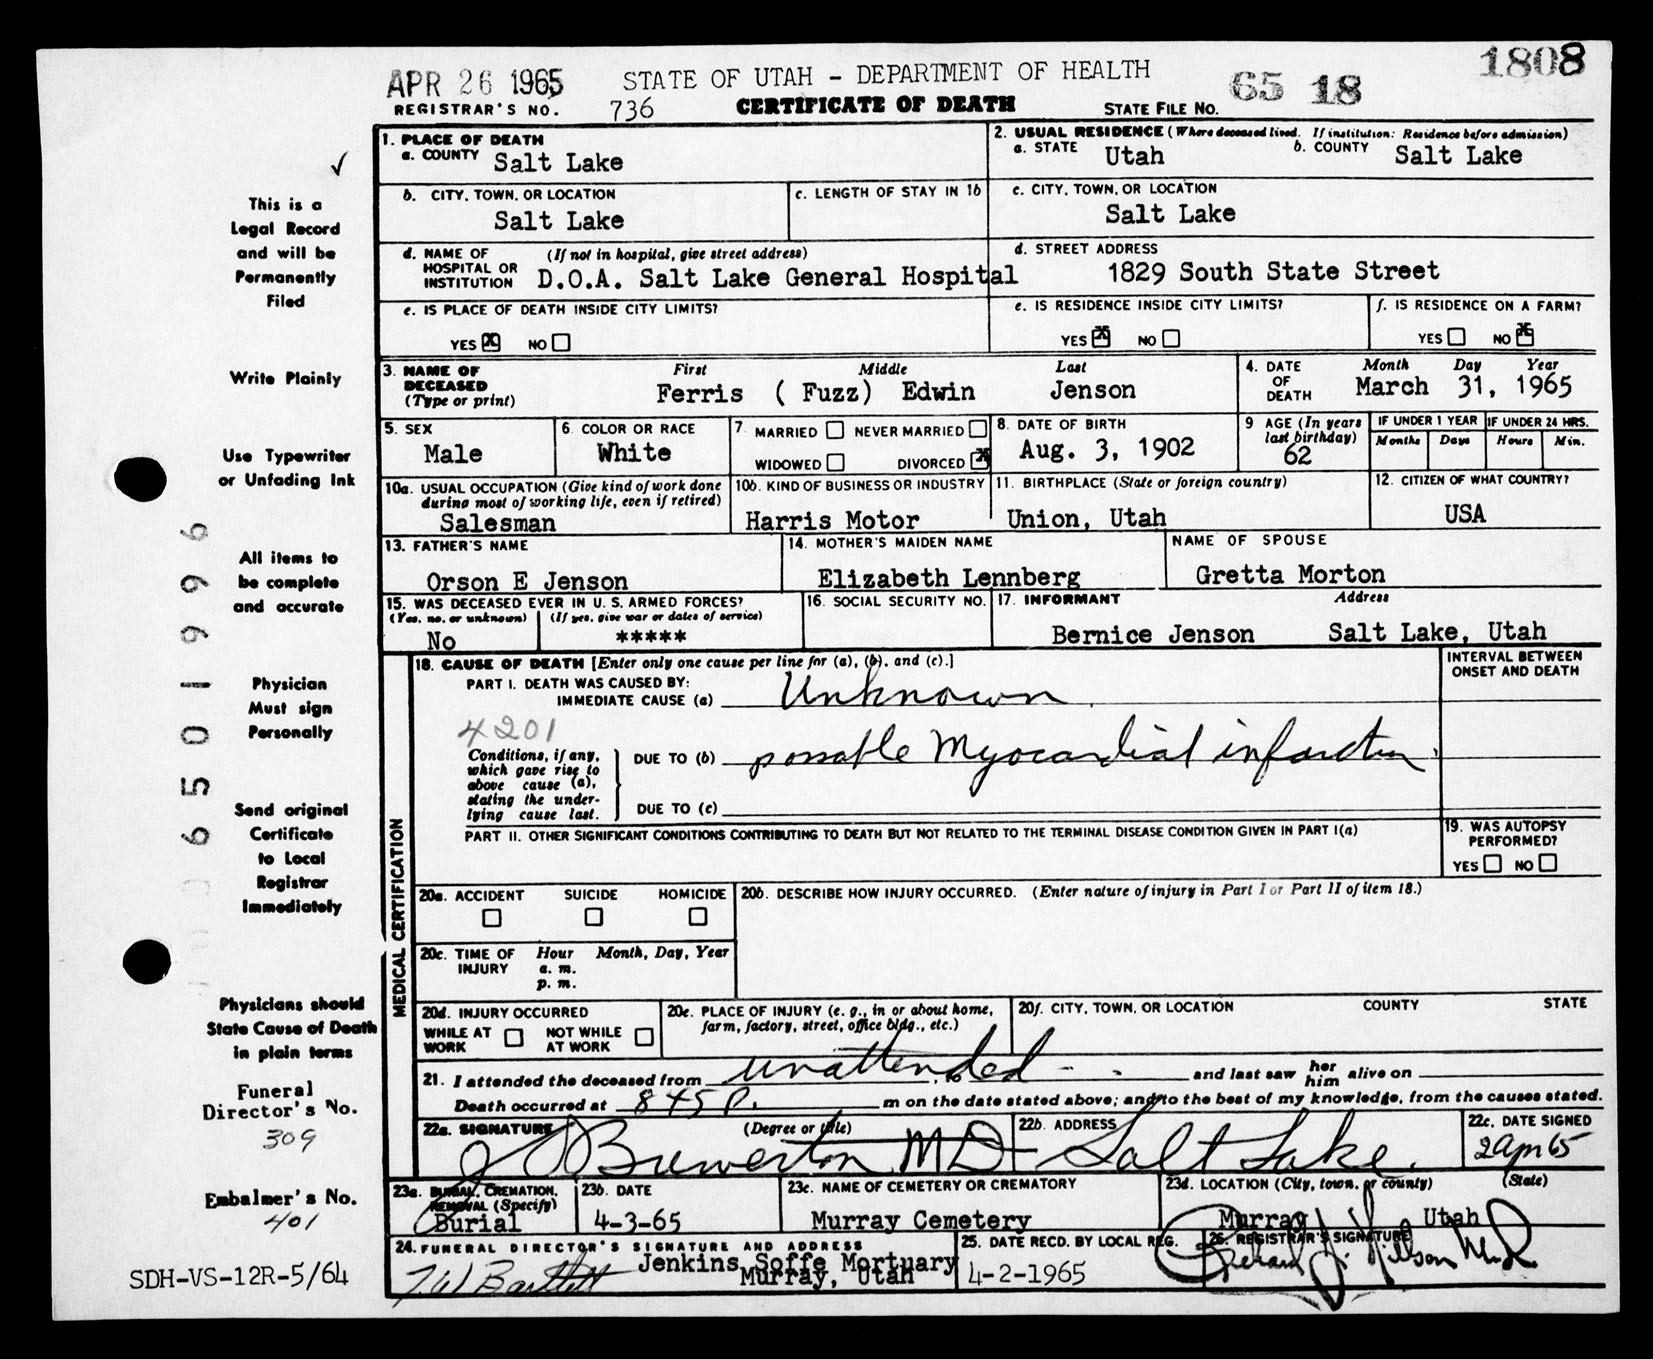 1808
APR 26 1965 STATE OF UTAH - DEPARTMENT OF HEALTH 65 18
REGISTRAR'S NO. 736 CERTIFICATE OF DEATH STATE FILE NO.
This is a
Legal Record
and will be
Permanently
Filed
Write Plainly
Use Typewriter
or Unfading Ink
All items to
be complete
and accurate
Physician
Must sign
Personally
Send original
Certificate
to Local
Registrar
Immediately
Physicians should
State Cause of Death
in plain terms
Funeral
Director's No.
309
Embalmer's No.
401
SDH-VS-12R-5/64
0 6 5 0 1 9 9 6
1. PLACE OF DEATH
a. COUNTY Salt Lake
2. USUAL RESIDENCE (Where deceased lived. If institution: Residence before admission)
a. STATE Utah b. COUNTY Salt Lake
b. CITY, TOWN, OR LOCATION
Salt Lake
c. LENGTH OF STAY IN 1b
c. CITY, TOWN, OR LOCATION
Salt Lake
d. NAME OF (If not in hospital, give street address)
HOSPITAL OR
INSTITUTION D.O.A. Salt Lake General Hospital
d. STREET ADDRESS
1829 South State Street
e. IS PLACE OF DEATH INSIDE CITY LIMITS?
YES X NO
e. IS RESIDENCE INSIDE CITY LIMITS?
YES X NO
f. IS RESIDENCE ON A FARM?
YES NO X
3. NAME OF First Middle Last
DECEASED
(Type or print) Ferris ( Fuzz) Edwin Jenson
4. DATE Month Day Year
OF
DEATH March 31, 1965
5. SEX
Male
6. COLOR OR RACE
White
7. MARRIED NEVER MARRIED
WIDOWED DIVORCED X
8. DATE OF BIRTH
Aug. 3, 1902
9 AGE (In years
last birthday)
62
IF UNDER 1 YEAR IF UNDER 24 HRS.
Months Days Hours Min.
10a. USUAL OCCUPATION (Give kind of work done
during most of working life, even if retired)
Salesman
10b. KIND OF BUSINESS OR INDUSTRY
Harris Motor
11. BIRTHPLACE (State or foreign country)
Union, Utah
12. CITIZEN OF WHAT COUNTRY?
USA
13. FATHER'S NAME
Orson E Jenson
14. MOTHER'S MAIDEN NAME
Elizabeth Lennberg
NAME OF SPOUSE
Gretta Morton
15. WAS DECEASED EVER IN U. S. ARMED FORCES?
(Yes, no, or unknown) (If yes, give war or dates of service)
No *****
16. SOCIAL SECURITY NO.
17. INFORMANT Address
Bernice Jenson Salt Lake, Utah
MEDICAL CERTIFICATION
18. CAUSE OF DEATH [Enter only one cause per line for (a), (b), and (c).]
INTERVAL BETWEEN
ONSET AND DEATH
PART I. DEATH WAS CAUSED BY:
IMMEDIATE CAUSE (a) Unknown
4201
Conditions, if any,
which gave rise to
above cause (a),
stating the under-
lying cause last.
DUE TO (b) possable Myocardial infarction.
DUE TO (c)
PART II. OTHER SIGNIFICANT CONDITIONS CONTRIBUTING TO DEATH BUT NOT RELATED TO THE TERMINAL DISEASE CONDITION GIVEN IN PART I(a)
19. WAS AUTOPSY
PERFORMED?
YES NO
20a. ACCIDENT SUICIDE HOMICIDE
20b. DESCRIBE HOW INJURY OCCURRED. (Enter nature of injury in Part I or Part II of item 18.)
20c. TIME OF Hour Month, Day, Year
INJURY a. m.
p. m.
20d. INJURY OCCURRED
WHILE AT NOT WHILE
WORK AT WORK
20e. PLACE OF INJURY (e. g., in or about home,
farm, factory, street, office bldg., etc.)
20f. CITY, TOWN, OR LOCATION COUNTY STATE
21. I attended the deceased from unattended to and last saw her him alive on
Death occurred at 845 P. m on the date stated above; and to the best of my knowledge, from the causes stated.
22a. SIGNATURE (Degree or title)
Brewerton MD
22b. ADDRESS
Salt Lake.
22c. DATE SIGNED
2 Apr 65
23a. BURIAL, CREMATION,
REMOVAL (Specify)
Burial
23b. DATE
4-3-65
23c. NAME OF CEMETERY OR CREMATORY
Murray Cemetery
23d. LOCATION (City, town, or county) (State)
Murray Utah
24. FUNERAL DIRECTOR'S SIGNATURE AND ADDRESS
Jenkins Soffe Mortuary
Bartlett Murray, Utah
25. DATE RECD. BY LOCAL REG.
4-2-1965
26. REGISTRAR'S SIGNATURE